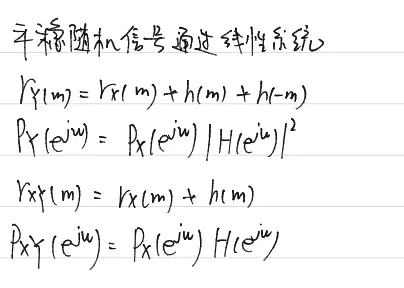 平稳随机信号通过线性系统
r_Y(m) = r_X(m) * h(m) * h(-m)
P_Y(e^{jw}) = P_X(e^{jw}) |H(e^{jw})|^2
r_{XY}(m) = r_X(m) * h(m)
P_{XY}(e^{jw}) = P_X(e^{jw}) H(e^{jw})